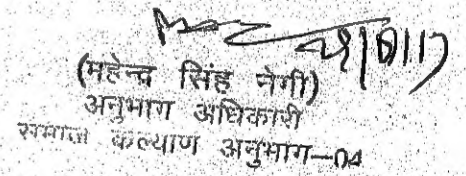 (महेन्द्र सिंह नेगी)
अनुभाग अधिकारी
समाज कल्याण अनुभाग–04